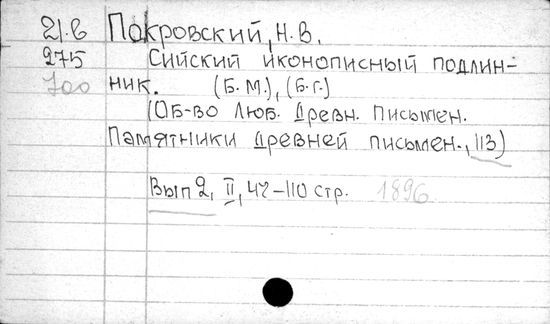 21.в Покровский, Н.В.
275 Сийский иконописный подлин-
700 ник. (Б.М.), (Б.г.)
(Об-во Люб. Древн. Письмен.
Памятники древней письмен., 113)
Вып 2, II, 47-110 стр. 1896